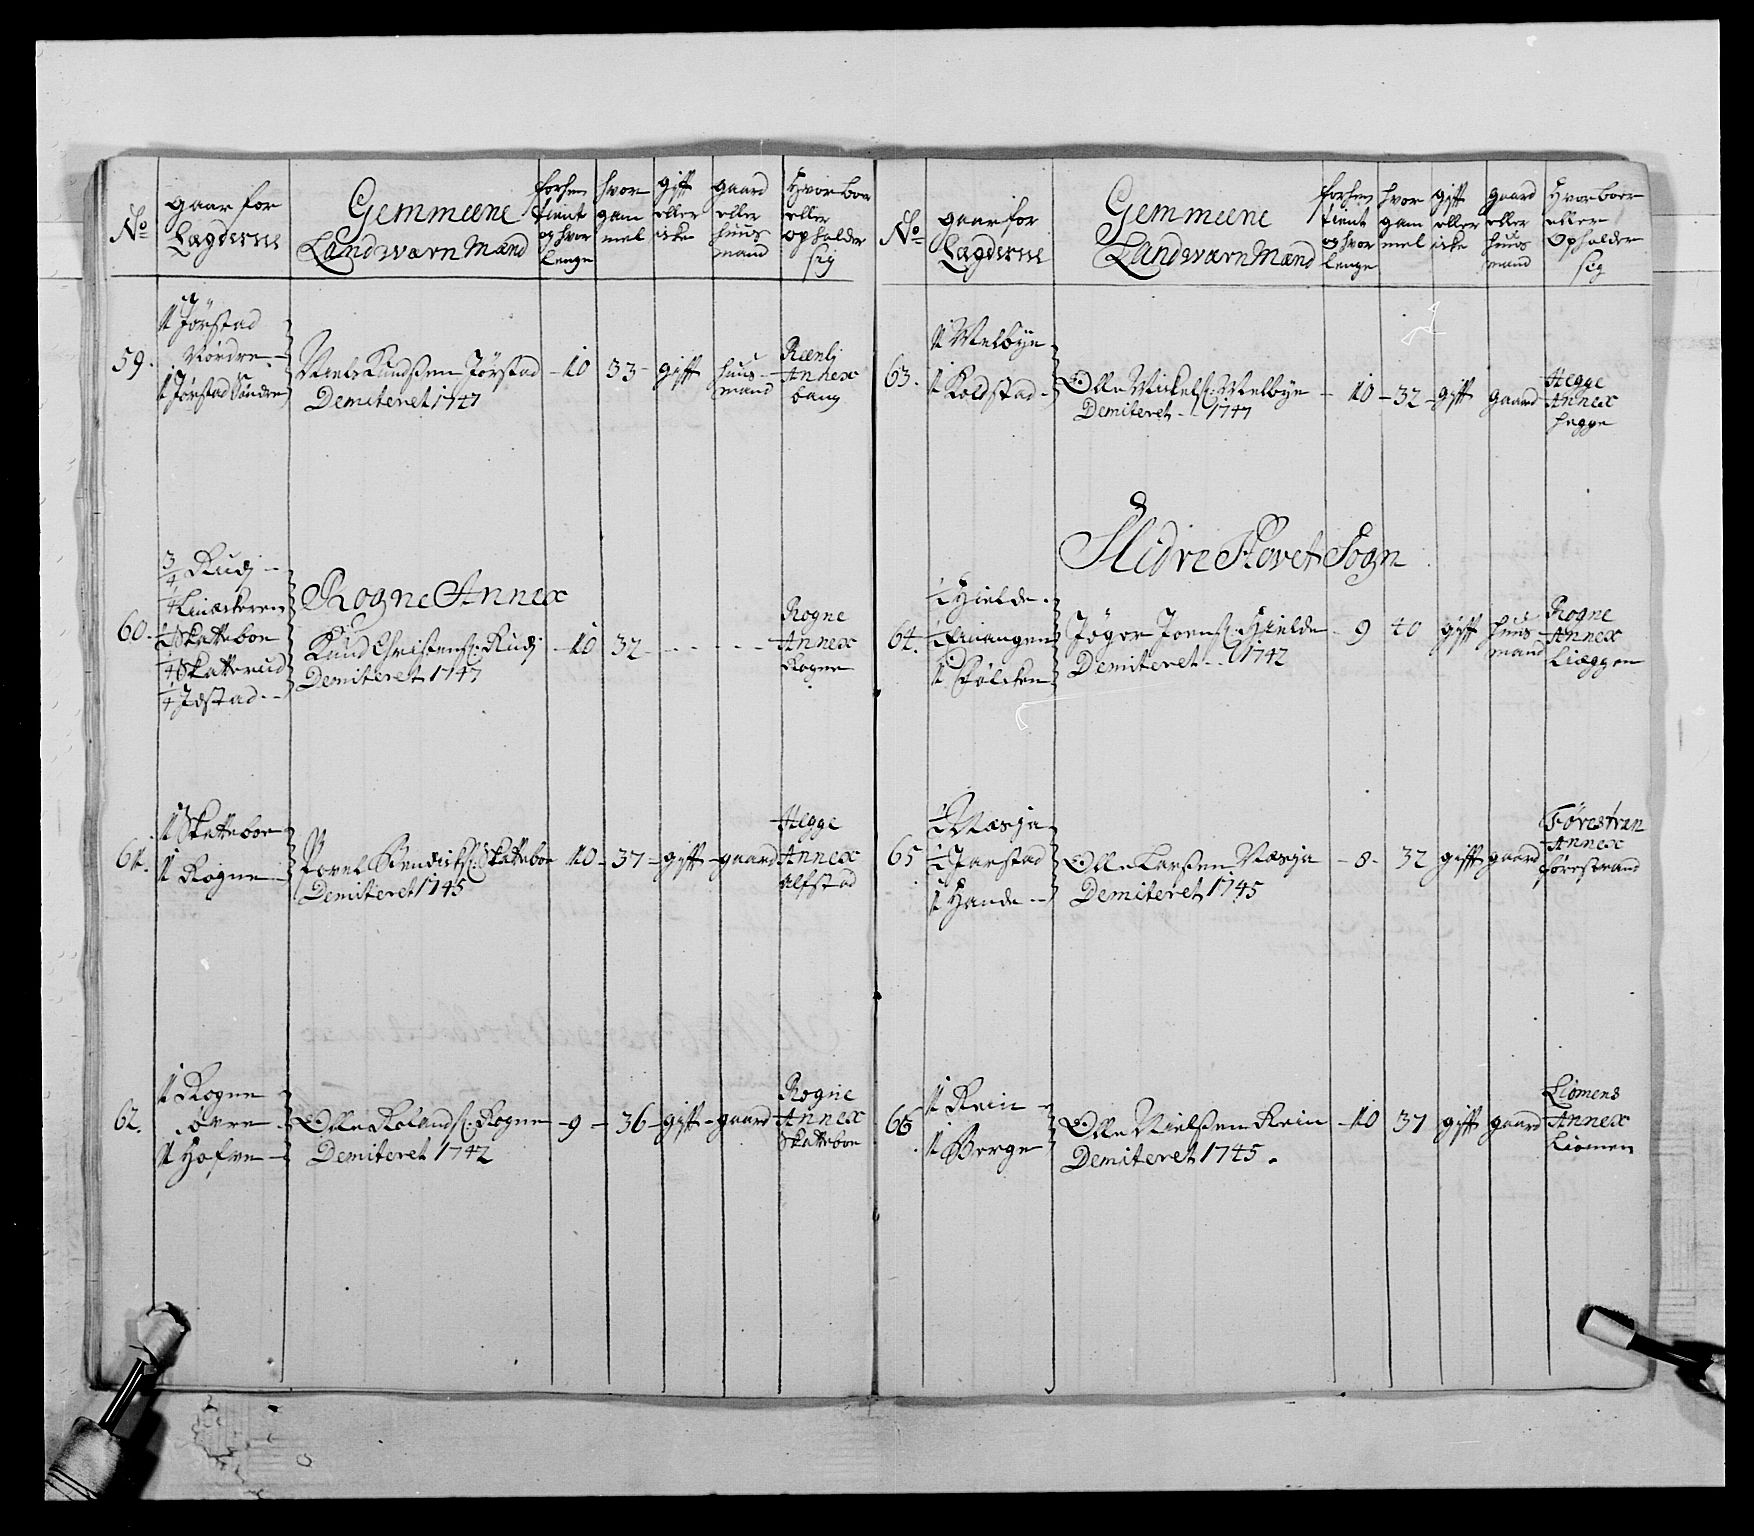 No
gaar for
Lægderne
Gemmeene
Landwærn Mænd
forhen
tient
og hvor
lenge
hvor
gam
mel
gift
eller
icke
gaard
eller
huus
mand
Hvor boer
eller
opholder
sig
59.
1 Jørstad
Nordre
1 Jørstad Søndre
Niels Knudssen Jørstad
Demiteret 1747
10
33
gift
huus
mand
Reenli
Annex
bang
Rogne Annex
60.
3/4 Rudj
1/4
1/2 Skatteboe
1/4 Skatterud
1/4 Jdstad
Knud Christens: Rudj
Demiteret 1747
10
32
Rogne
Annex
Rogne
61.
1 Skatteboe
1 Rogne
Povel Skatteboe
Demiteret 1745
10
37
gift
gaard
Hegge
Annex
Alfstad
62.
1 Rogne
øvre
1 Hofve
Olle Rolands: Rogne
Demiteret 1742
9
36
gift
gaard
Rogne
Annex
Skatteboe
No
gaar for
Lægderne
Gemmeene
Landwærn Mænd
forhen
tient
og hvor
lenge
hvor
gam
mel
gift
eller
icke
gaard
eller
huus
mand
Hvor boer
eller
opholder
sig
63.
1 Melbye
1 Koldstad
Olle Mickels: Melbye
Demiteret 1747
10
32
gift
gaard
Hegge
Annex
hegge
Slidre Hovet Sogn
64.
1/2 Hielde
1/2
1
Jøger Joens: Hielde
Demiteret 1742
9
40
gift
huus
mand
Rogne
Annex
Liæggen
65
1/2 Næsja
1/2 Jarstad
1 Hande
Olle Larssen Næsja
Demiteret 1745
8
32
gift
gaard
Førestran
Annex
førestrand
66
1 Rein
1 Berge
Olle Nielssen Rein
Demiteret 1745
10
37
gift
gaard
Liomens
Annex
Liomen